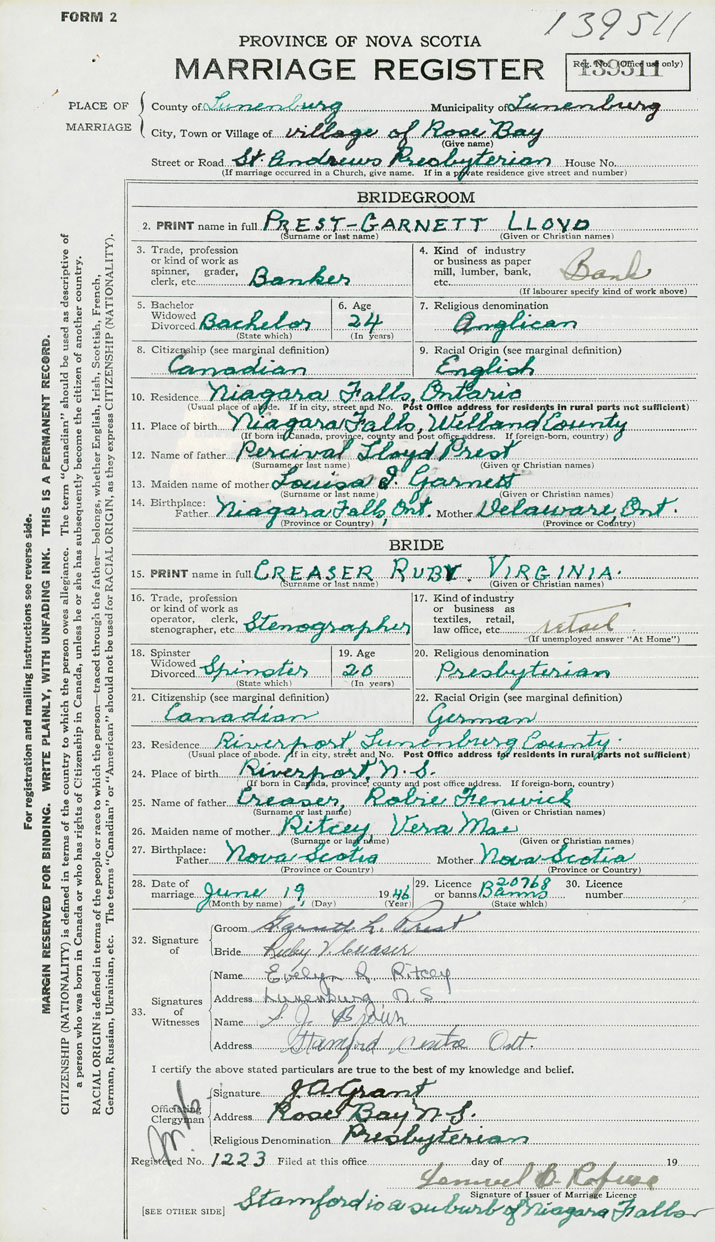 FORM 2
139511
PROVINCE OF NOVA SCOTIA
MARRIAGE REGISTER
Reg. No. (Office use only)
139511
PLACE OF MARRIAGE
County of Lunenburg Municipality of Lunenburg
City, Town or Village of village of Rose Bay
(Give name)
Street or Road St. Andrews Presbyterian House No.
(If marriage occurred in a Church, give name. If in a private residence give street and number)
BRIDEGROOM
2. PRINT name in full PREST-GARNETT LLOYD
(Surname or last name) (Given or Christian names)
3. Trade, profession or kind of work as spinner, grader, clerk, etc. Banker
4. Kind of industry or business as paper mill, lumber, bank, etc. Bank
(If labourer specify kind of work above)
5. Bachelor Widowed Divorced Bachelor
(State which)
6. Age 24
(In years)
7. Religious denomination
Anglican
8. Citizenship (see marginal definition)
Canadian
9. Racial Origin (see marginal definition)
English
10. Residence Niagara Falls, Ontario
(Usual place of abode. If in city, street and No. Post Office address for residents in rural parts not sufficient)
11. Place of birth Niagara Falls, Welland County
(If born in Canada, province, county and post office address. If foreign-born, country)
12. Name of father Percival Lloyd Prest
(Surname or last name) (Given or Christian names)
13. Maiden name of mother Louisa J. Garnett
(Surname or last name) (Given or Christian names)
14. Birthplace: Father Niagara Falls, Ont. Mother Delaware, Ont.
(Province or Country) (Province or Country)
BRIDE
15. PRINT name in full CREASER RUBY VIRGINIA.
(Surname or last name) (Given or Christian names)
16. Trade, profession or kind of work as operator, clerk, stenographer, etc. Stenographer
17. Kind of industry or business as textiles, retail, law office, etc. retail
(If unemployed answer "At Home")
18. Spinster Widowed Divorced Spinster
(State which)
19. Age 20
(In years)
20. Religious denomination
Presbyterian
21. Citizenship (see marginal definition)
Canadian
22. Racial Origin (see marginal definition)
German
23. Residence Riverport, Lunenburg County.
(Usual place of abode. If in city, street and No. Post Office address for residents in rural parts not sufficient)
24. Place of birth Riverport, N.S.
(If born in Canada, province, county and post office address. If foreign-born, country)
25. Name of father Creaser, Robie Fenwick
(Surname or last name) (Given or Christian names)
26. Maiden name of mother Ritcey Vera Mae
(Surname or last name) (Given or Christian names)
27. Birthplace: Father Nova Scotia Mother Nova Scotia
(Province or Country) (Province or Country)
28. Date of marriage June 19, 1946
(Month by name) (Day) (Year)
29. Licence or banns 20768 Banns
(State which)
30. Licence number
32. Signature of
Groom Garnett L. Prest
Bride Ruby V. Creaser
33. Signatures of Witnesses
Name Evelyn R. Ritcey
Address Lunenburg, N.S
Name
Address Stamford, Centre Ont.
I certify the above stated particulars are true to the best of my knowledge and belief.
Officiating Clergyman
Signature J.A. Grant
Address Rose Bay N.S.
Religious Denomination Presbyterian
Registered No. 1223 Filed at this office day of 19
Signature of Issuer of Marriage Licence
[SEE OTHER SIDE] Stamford is a suburb of Niagara Falls
For registration and mailing instructions see reverse side.
MARGIN RESERVED FOR BINDING. WRITE PLAINLY, WITH UNFADING INK. THIS IS A PERMANENT RECORD.
CITIZENSHIP (NATIONALITY) is defined in terms of the country to which the person owes allegiance. The term "Canadian" should be used as descriptive of
a person who was born in Canada or who has rights of Citizenship in Canada, unless he or she has subsequently become the citizen of another country.
RACIAL ORIGIN is defined in terms of the people or race to which the person—traced through the father—belongs, whether English, Irish, Scottish, French,
German, Russian, Ukrainian, etc. The terms "Canadian" or "American" should not be used for RACIAL ORIGIN, as they express CITIZENSHIP (NATIONALITY).